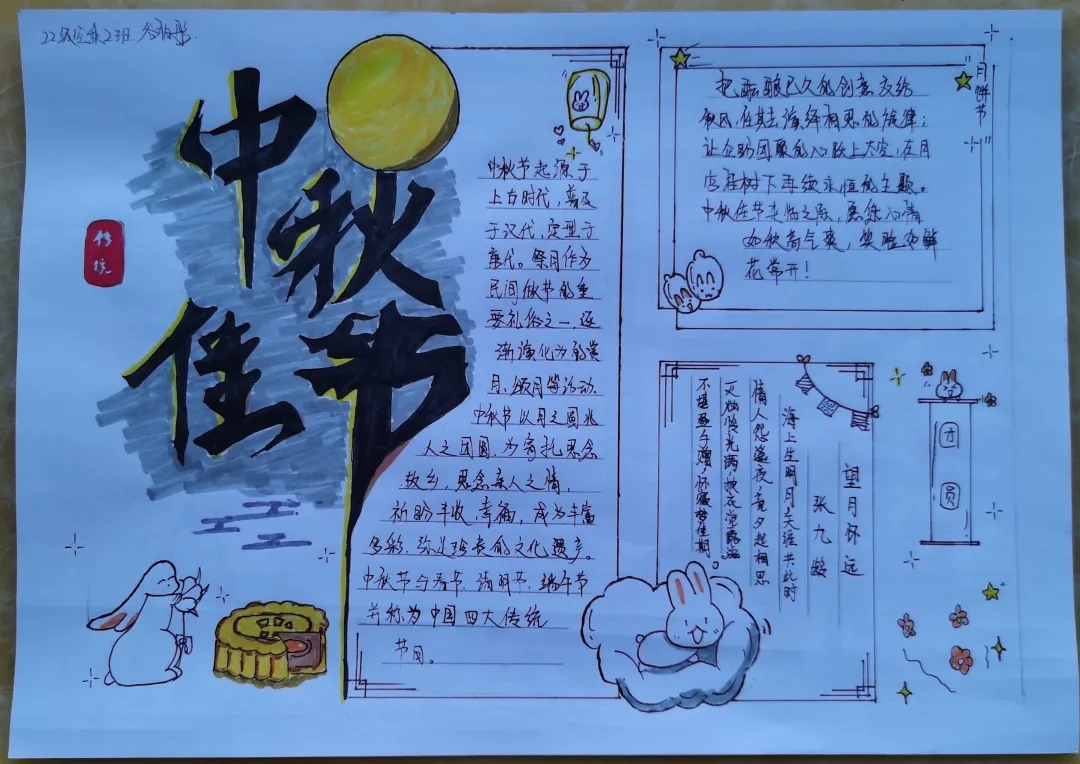 中秋
佳节
传
统
中秋节起源于
上古时代，普及
于汉代，定型于
唐代。祭月作为
民间做节的重
要礼俗之一，逐
渐演化为的赏
月、颂月等活动。
中秋节以月之圆兆
人之团圆，为寄托思念
故乡，思念亲人之情，
祈盼丰收、幸福，成为丰富
多彩、弥足珍贵的文化遗产。
中秋节与春节、清明节、端午节
并称为中国四大传统
节日。
月饼节
把酝酿已久的创意交给
秋风，在其去演绎相思的旋律；
让企盼团聚的心跃上太空，在月
宫桂树下再续永恒的主题。
中秋佳节来临之际，愿您心情
如秋高气爽，笑脸如鲜
花常开！
望月怀远
张九龄
海上生明月，天涯共此时
情人怨遥夜，竟夕起相思
灭烛怜光满，披衣觉露滋。
不堪盈手赠，怀寝梦佳期
团
圆